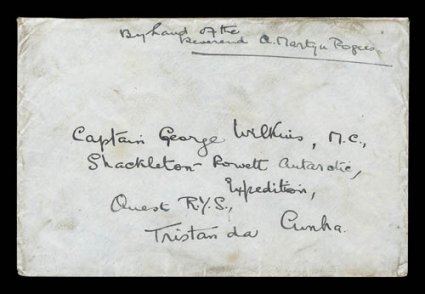 By hand of the
Reverend A. Martyn Rogers
Captain George Wilkins, M.C.,
Shackleton-Rowett Antarctic,
Expedition,
Quest R.Y.S.,
Tristan da Cunha.